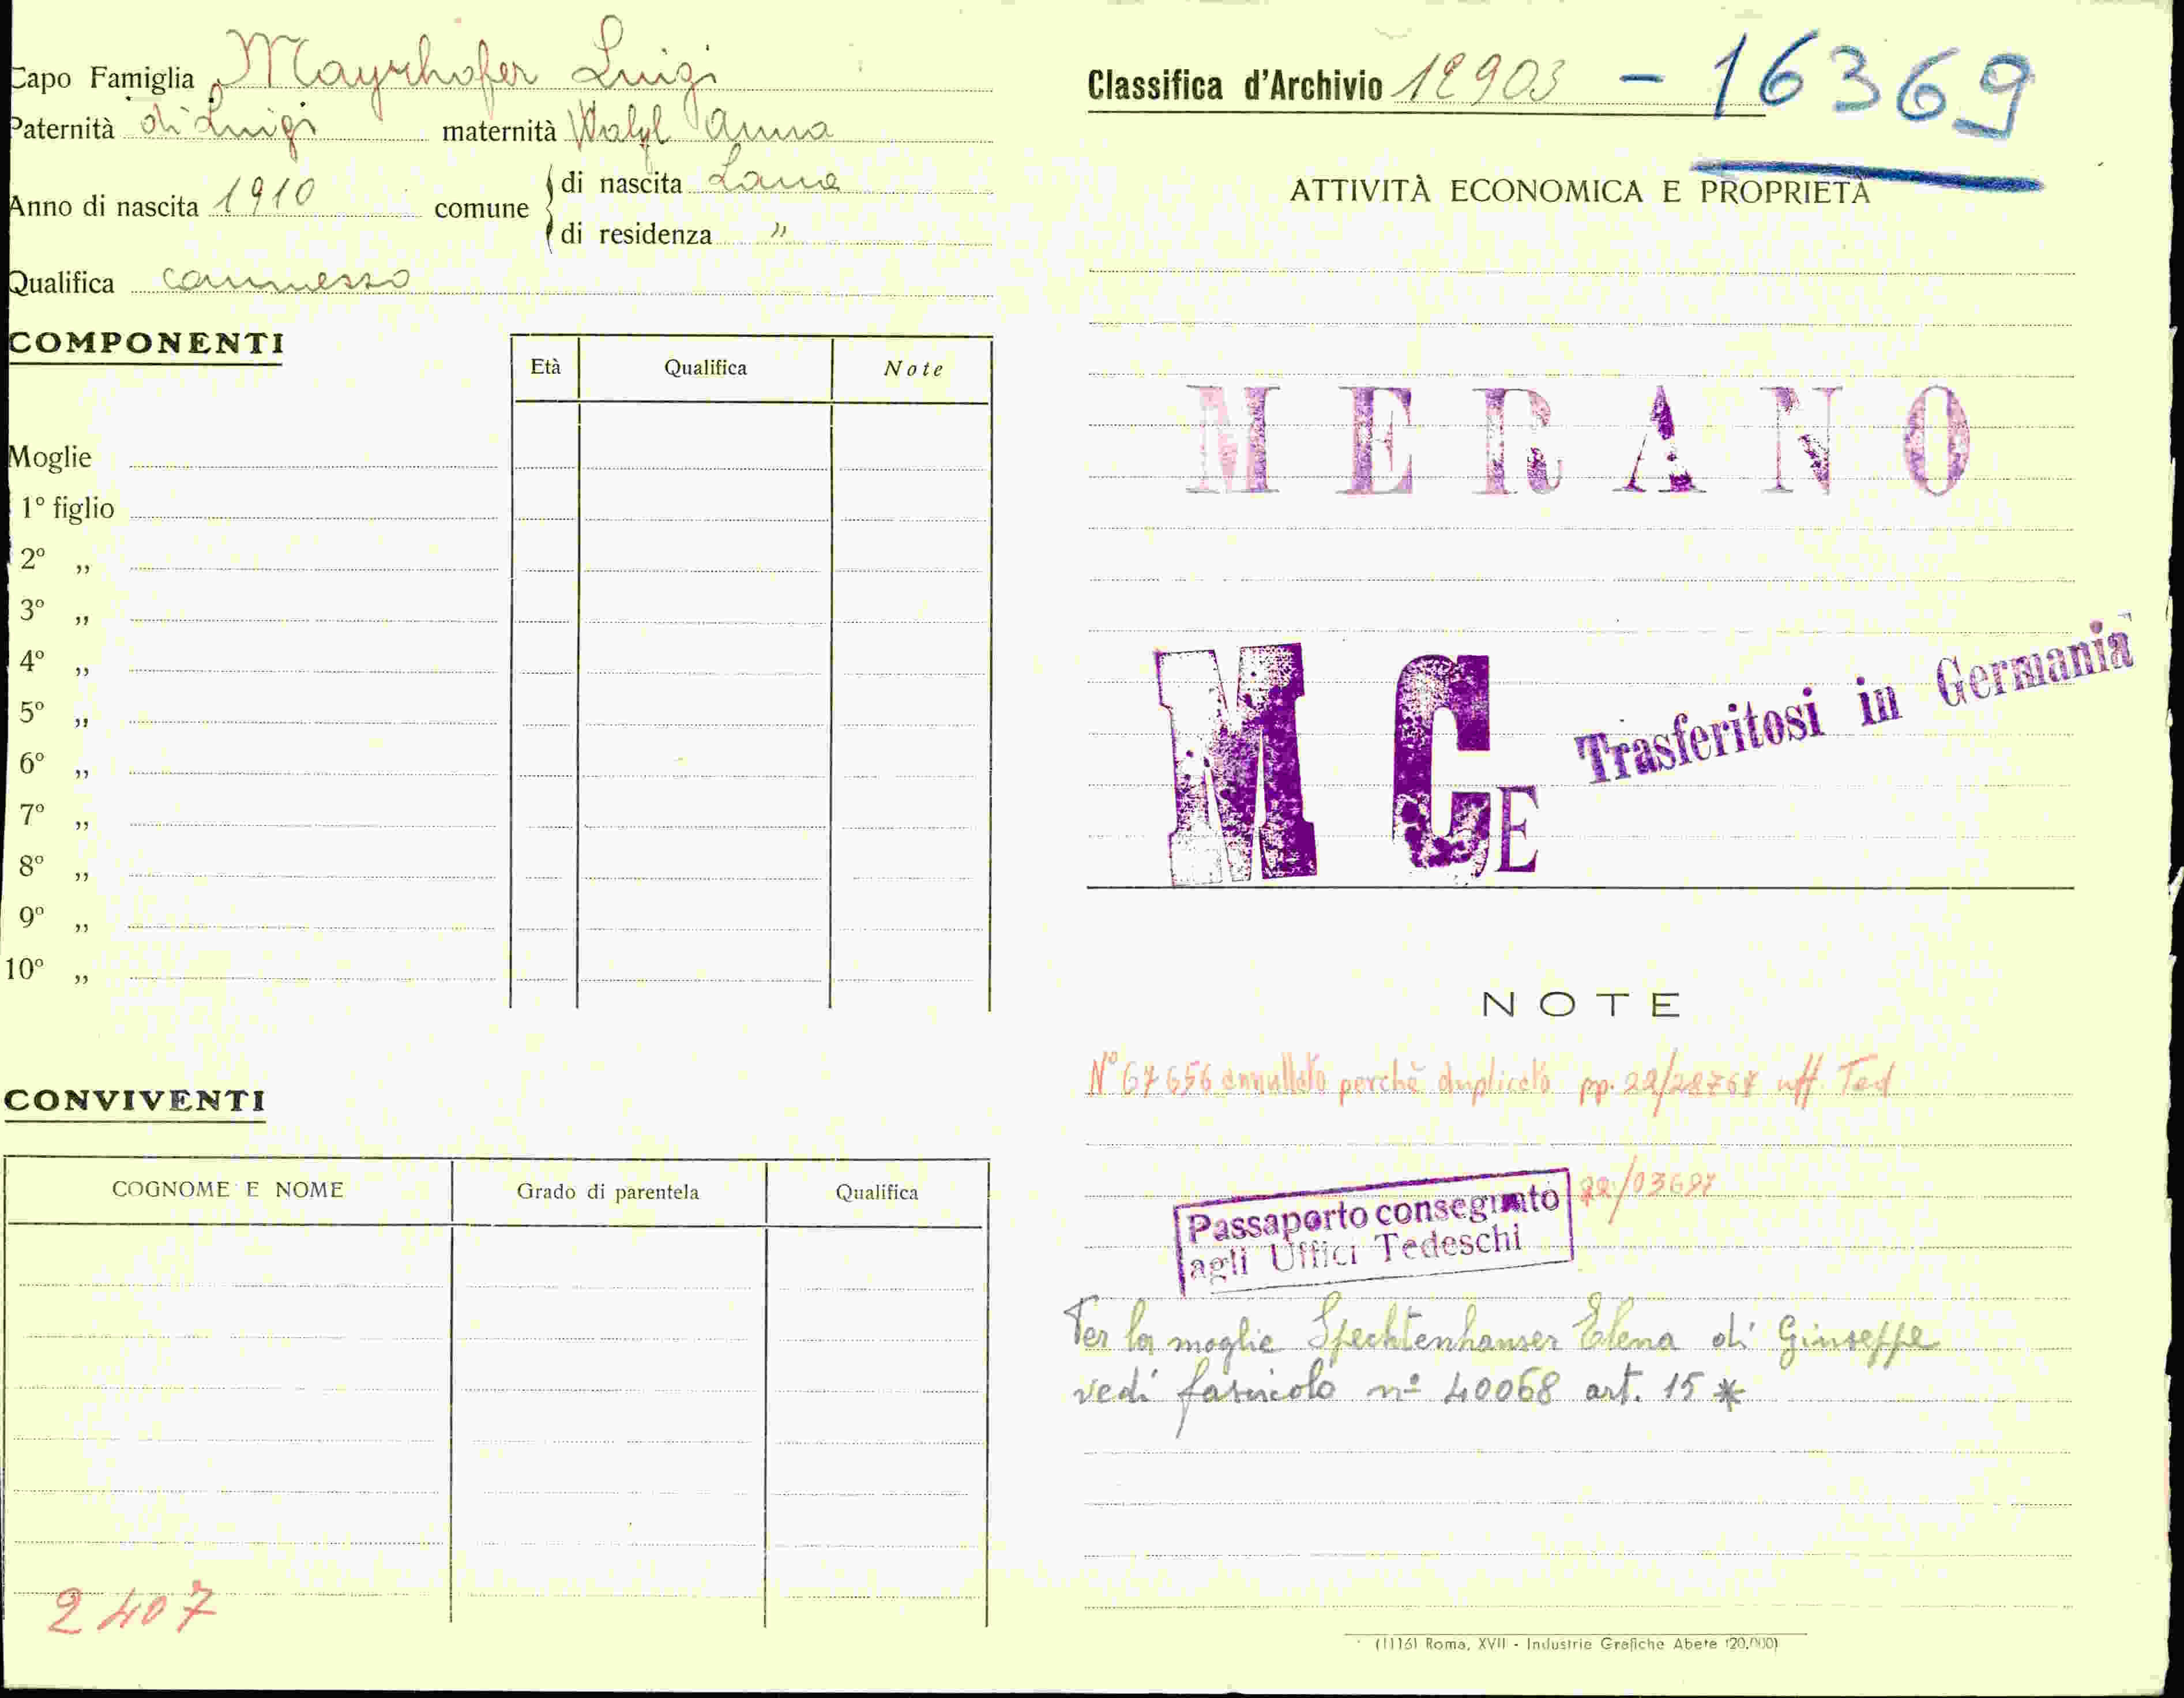 Capo Famiglia Mayrhofer Luigi
Paternità di Luigi maternità Anna
Anno di nascita 1910 comune di nascita Lana
di residenza "
Qualifica commesso
COMPONENTI
Età Qualifica Note
Moglie
1° figlio
2° „
3° „
4° „
5° „
6° „
7° „
8° „
9° „
10° „
CONVIVENTI
COGNOME E NOME Grado di parentela Qualifica
2407
Classifica d'Archivio 12903 - 16369
ATTIVITÀ ECONOMICA E PROPRIETÀ
MERANO
M C E Trasferitosi in Germania
NOTE
N° 67656 annullato perchè duplicato pp. uff. Ted
Passaporto consegnato
agli Uffici Tedeschi
Per la moglie Spechtenhauser Elena di Giuseppe
vedi fascicolo n° 40068 art. 15 *
(1116) Roma, XVII - Industrie Grafiche Abete (20.000)